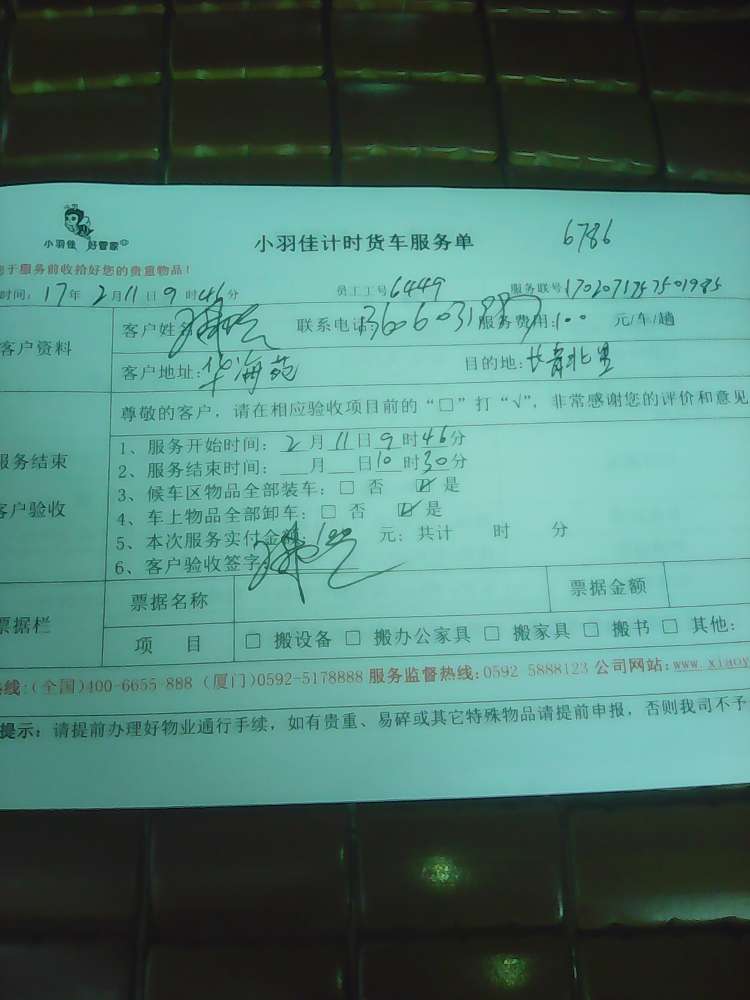 小羽
小羽佳 好管家
小羽佳计时货车服务单 6786
于服务前收拾好您的贵重物品！
时间：17年2月11日9时46分 员工工号6449 服务联号
客户资料
客户姓 联系电话： 服务费用：100 元/车/趟
客户地址：华海苑 目的地：长青北里
尊敬的客户，请在相应验收项目前的“□”打“√”，非常感谢您的评价和意见
服务结束
客户验收
1、服务开始时间：2月11日9时46分
2、服务结束时间：___月___日10时30分
3、候车区物品全部装车：□ 否 ☑ 是
4、车上物品全部卸车：□ 否 ☑ 是
5、本次服务实付金 100 元；共计 时 分
6、客户验收签字
票据栏
票据名称 票据金额
项 目 □ 搬设备 □ 搬办公家具 □ 搬家具 □ 搬书 □ 其他：
热线：(全国)400-6655-888 (厦门)0592-5178888 服务监督热线：0592 5888123 公司网站：www.xiaoy
提示：请提前办理好物业通行手续，如有贵重、易碎或其它特殊物品请提前申报，否则我司不予